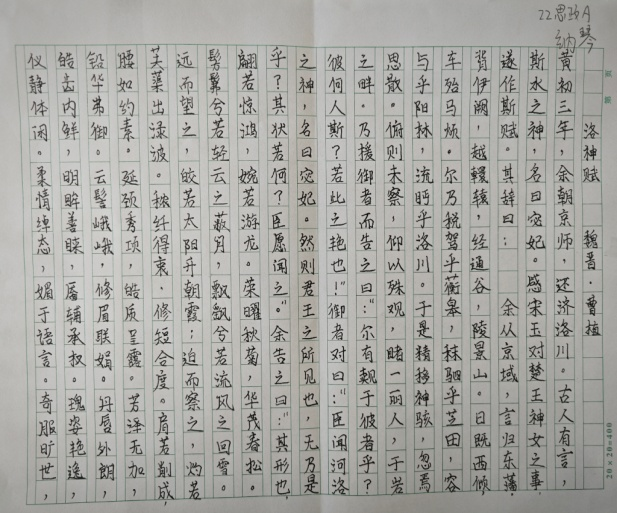 22思政A
纳琴
洛神赋 魏晋·曹植
黄初三年，余朝京师，还济洛川。古人有言，
斯水之神，名曰宓妃。感宋玉对楚王神女之事，
遂作斯赋。其辞曰： 余从京域，言归东藩，
背伊阙，越轘辕，经通谷，陵景山。日既西倾，
车殆马烦。尔乃税驾乎蘅皋，秣驷乎芝田，容
与乎阳林，流眄乎洛川。于是精移神骇，忽焉
思散。俯则未察，仰以殊观，睹一丽人，于岩
之畔。乃援御者而告之曰：“尔有觌于彼者乎？
彼何人斯？若此之艳也！”御者对曰：“臣闻河洛
之神，名曰宓妃。然则君王之所见也，无乃是
乎？其状若何？臣愿闻之。”余告之曰：“其形也，
翩若惊鸿，婉若游龙。荣曜秋菊，华茂春松。
髣髴兮若轻云之蔽月，飘飘兮若流风之回雪。
远而望之，皎若太阳升朝霞；迫而察之，灼若
芙蕖出渌波。秾纤得衷，修短合度。肩若削成，
腰如约素。延颈秀项，皓质呈露。芳泽无加，
铅华弗御。云髻峨峨，修眉联娟。丹唇外朗，
皓齿内鲜，明眸善睐，靥辅承权。瑰姿艳逸，
仪静体闲。柔情绰态，媚于语言。奇服旷世，
20×20=400